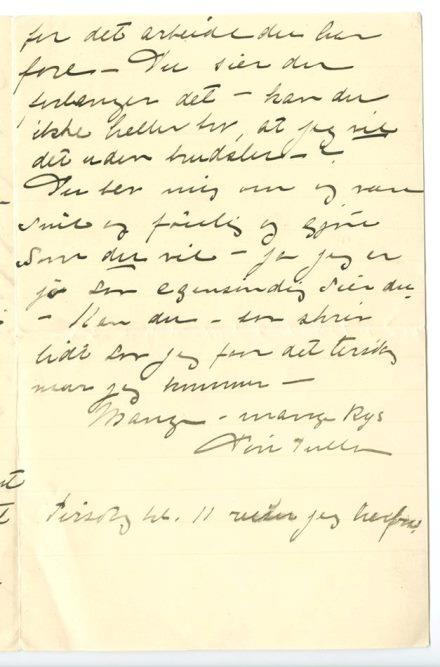 for det arbeide du har
fore – Du sier du
forlanger det – kan du
ikke heller be, at jeg vil
det uden trudsler – ?
Du ber mig om og være
snil og føielig og gjøre
som du vil – ja jeg er
jo saa egensindig sier du
– Kan du – saa skriv
lidt saa jeg faar det tirsdag
naar jeg kommer –
Mange – mange Kys
Din Tulla
Tirsdag kl. 11 reiser jeg